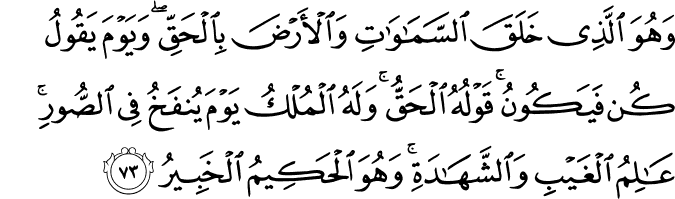 وَهُوَ ٱلَّذِى خَلَقَ ٱلسَّمَـٰوَٰتِ وَٱلْأَرْضَ بِٱلْحَقِّ ۖ وَيَوْمَ يَقُولُ
كُن فَيَكُونُ ۚ قَوْلُهُ ٱلْحَقُّ ۚ وَلَهُ ٱلْمُلْكُ يَوْمَ يُنفَخُ فِى ٱلصُّورِ ۚ
عَـٰلِمُ ٱلْغَيْبِ وَٱلشَّهَـٰدَةِ ۚ وَهُوَ ٱلْحَكِيمُ ٱلْخَبِيرُ ۝٧٣